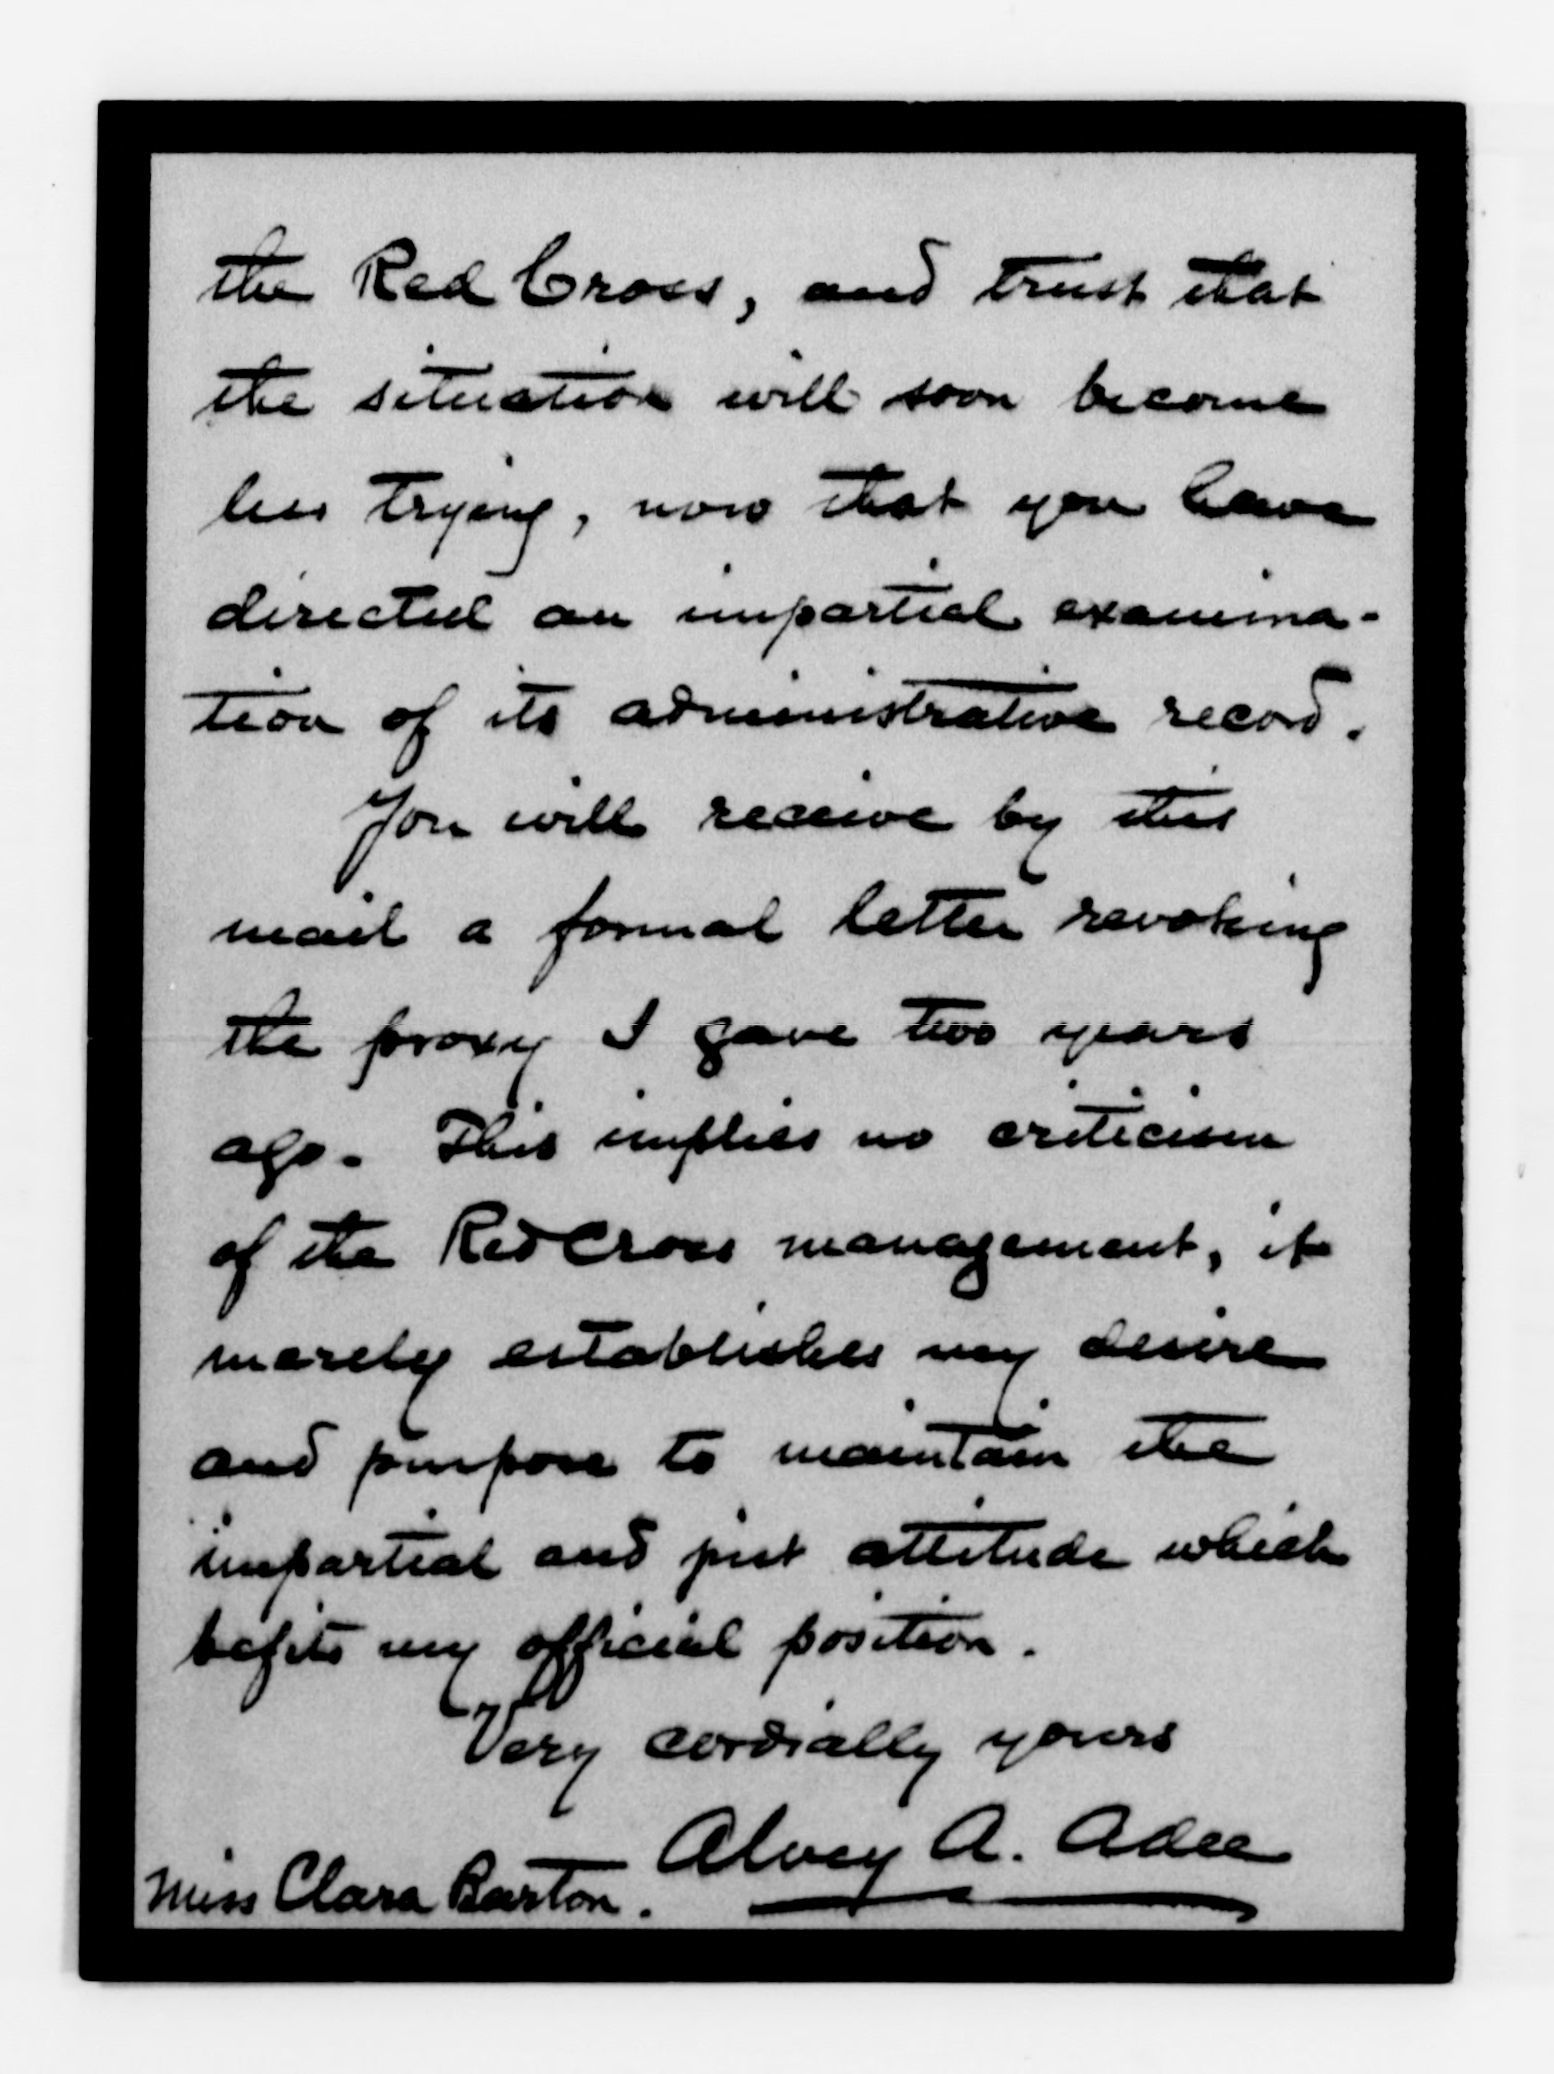 the Red Cross, and trust that
the situation will soon become
less trying, now that you have
directed an impartial examina-
tion of its administrative record.
You will receive by this
mail a formal letter revoking
the proxy I gave two years
ago. This implies no criticism
of the Red Cross management, it
merely establishes my desire
and purpose to maintain the
impartial and just attitude which
befits my official position.
Very cordially yours
Alvey A. Adee
Miss Clara Barton.